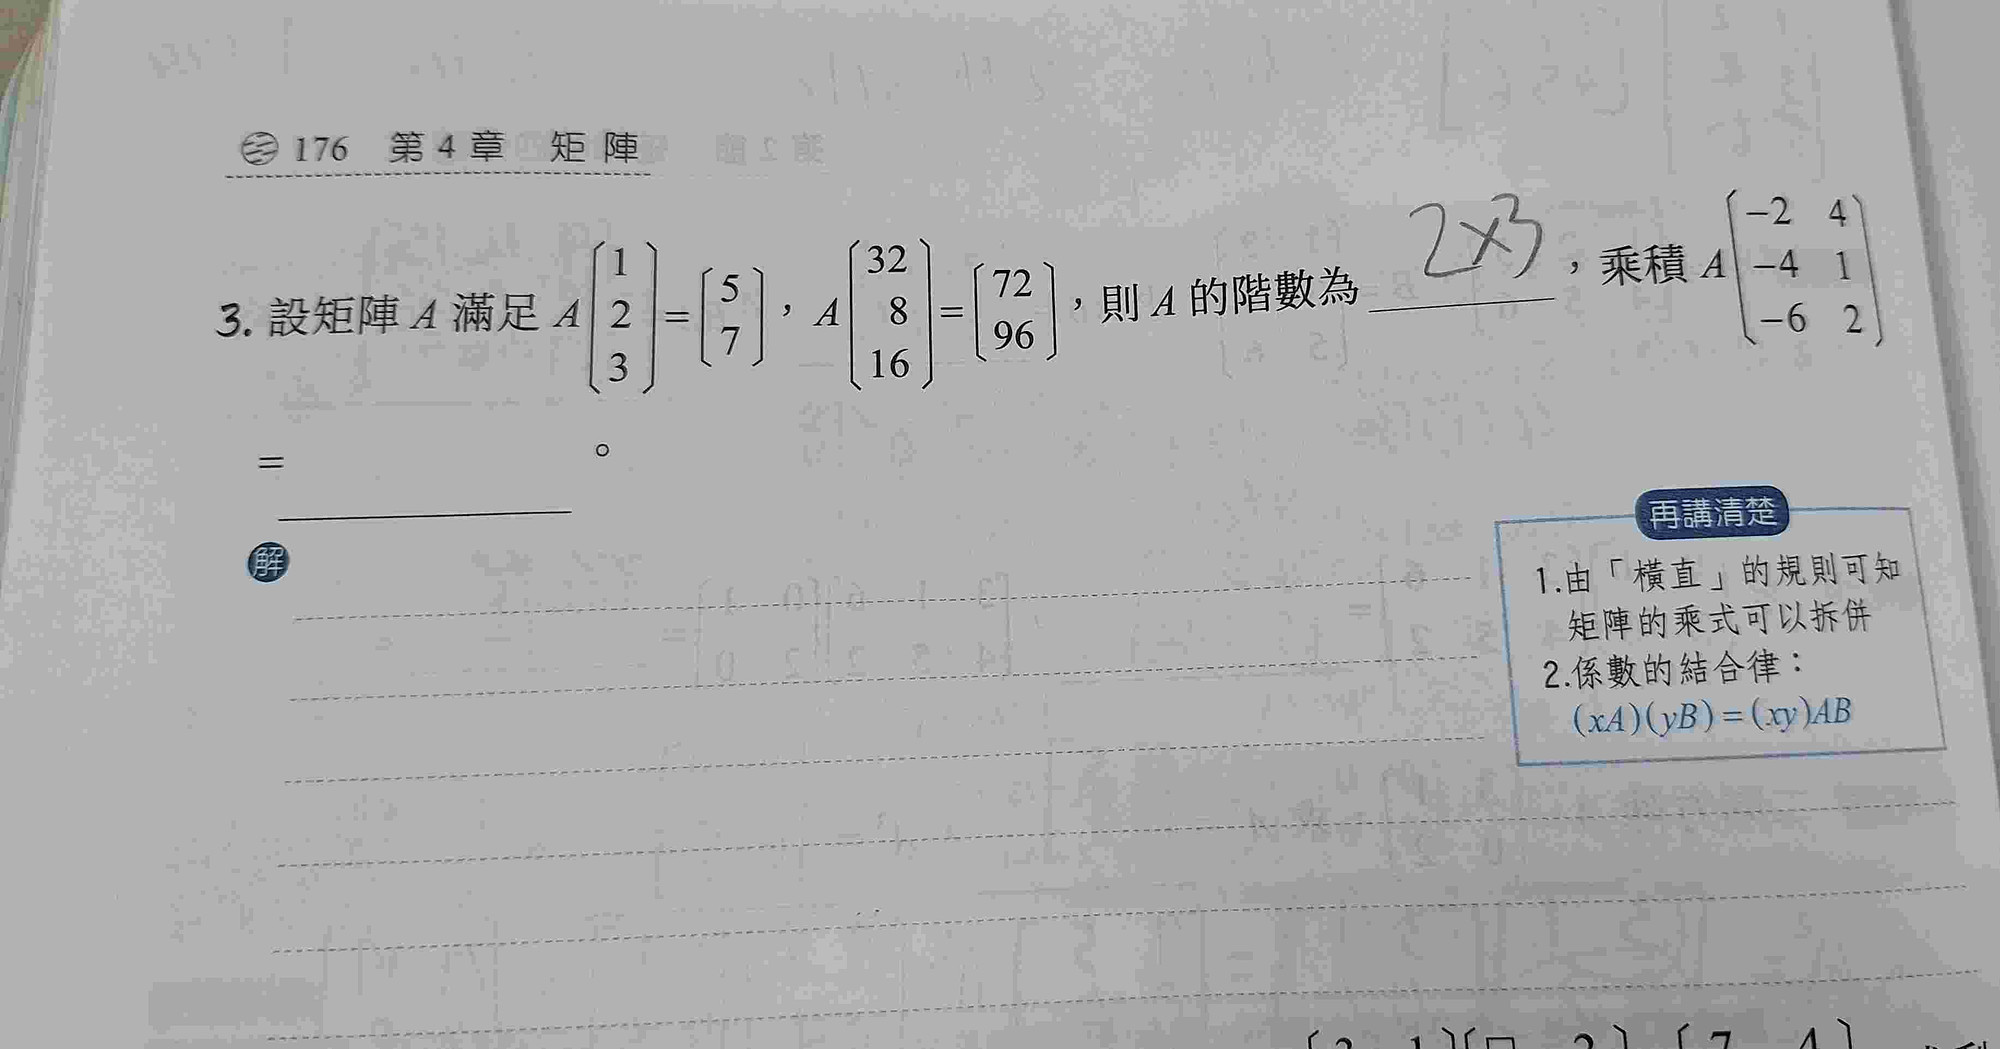 176 第4章 矩陣
3. 設矩陣 A 滿足 A[1 2 3] = [5 7],A[32 8 16] = [72 96],則 A 的階數為 2×3,乘積 A[-2 4 -4 1 -6 2]
= 。
解
再講清楚
1.由「橫直」的規則可知
矩陣的乘式可以拆併
2.係數的結合律:
(xA)(yB)=(xy)AB